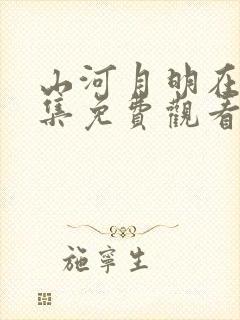 山河月明在
集免費觀看
施寧生